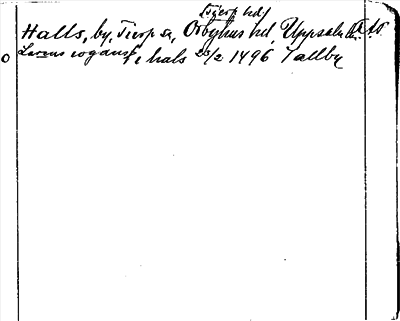 (Tierp hd)
Halls, by, Tierp sn, Örbyhus hd, Uppsala
Larens i hals 25/2 1496 Tallby